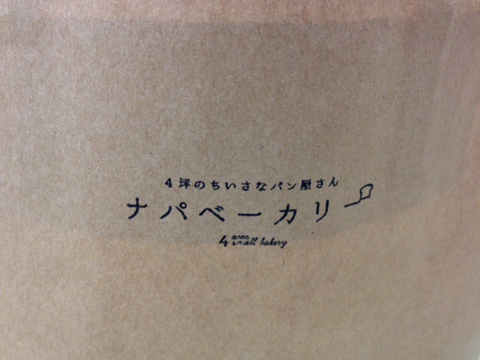 4坪のちいさなパン屋さん
ナパベーカリー
4 small bakery